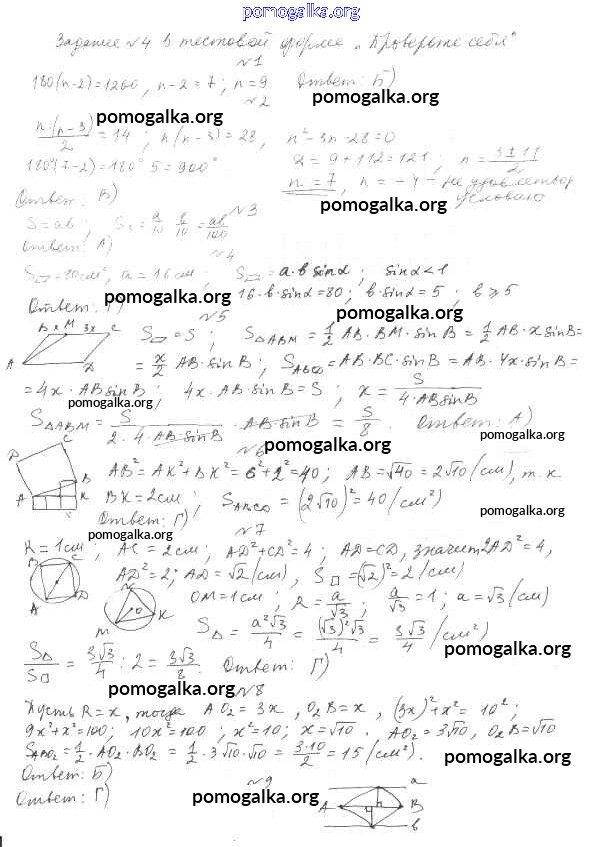 pomogalka.org
Задание №4 в тестовой форме „Проверьте себя"
№1
180(n-2)=1260, n-2=7; n=9 Ответ: Б)
pomogalka.org
№2
pomogalka.org
n·(n-3)/2 = 14; n(n-3)=28, n²-3n-28=0
180°(7-2)=180°·5=900° D=9+112=121; n=(3±11)/2
n=7, n=-4 - не удовлетвор условию
Ответ: В)
pomogalka.org
№3
S=ab; S₁=a/10·b/10=ab/100
Ответ: А)
№4
S▱=80см², a=16см; S▱=a·b sinα; sinα<1
16·b·sinα=80; b·sinα=5; b≥5
Ответ: Г)
pomogalka.org
pomogalka.org
№5
B x M 3x C
A D
S▱=S; S△ABM=1/2 AB·BM·sin B=1/2 AB·x sinB=
=x/2 AB·sin B; SABCD=AB·BC·sin B=AB·4x·sin B=
=4x·AB sin B; 4x·AB·sin B=S; x=S/(4·AB sin B)
pomogalka.org
S△ABM=S/(2·4·AB sin B)·AB sin B=S/8. Ответ: А)
pomogalka.org
pomogalka.org
№6
D C A B K
AB²=AK²+BK²=6²+2²=40; AB=√40=2√10(см), т.к.
BK=2см; SABCD=(2√10)²=40(см²)
Ответ: Г)
pomogalka.org
pomogalka.org
№7
R=1см; AC=2см; AD²+CD²=4; AD=CD, значит 2AD²=4,
B C A D
AD²=2; AD=√2(см), S□=(√2)²=2(см)
N O K M
OM=1см; R=a/√3; a/√3=1; a=√3(см)
S△=a²√3/4=(√3)²√3/4=3√3/4(см²)
pomogalka.org
S△/S□=3√3/4:2=3√3/8. Ответ: Г)
pomogalka.org
№8
Пусть R=x, тогда AO₂=3x, O₂B=x, (3x)²+x²=10²;
9x²+x²=100; 10x²=100; x²=10; x=√10. AO₂=3√10, O₂B=√10
SABO₂=1/2·AO₂·BO₂=1/2·3√10·√10=3·10/2=15(см²).
pomogalka.org
Ответ: Б)
№9
Ответ: Г)
pomogalka.org
a
A B
b